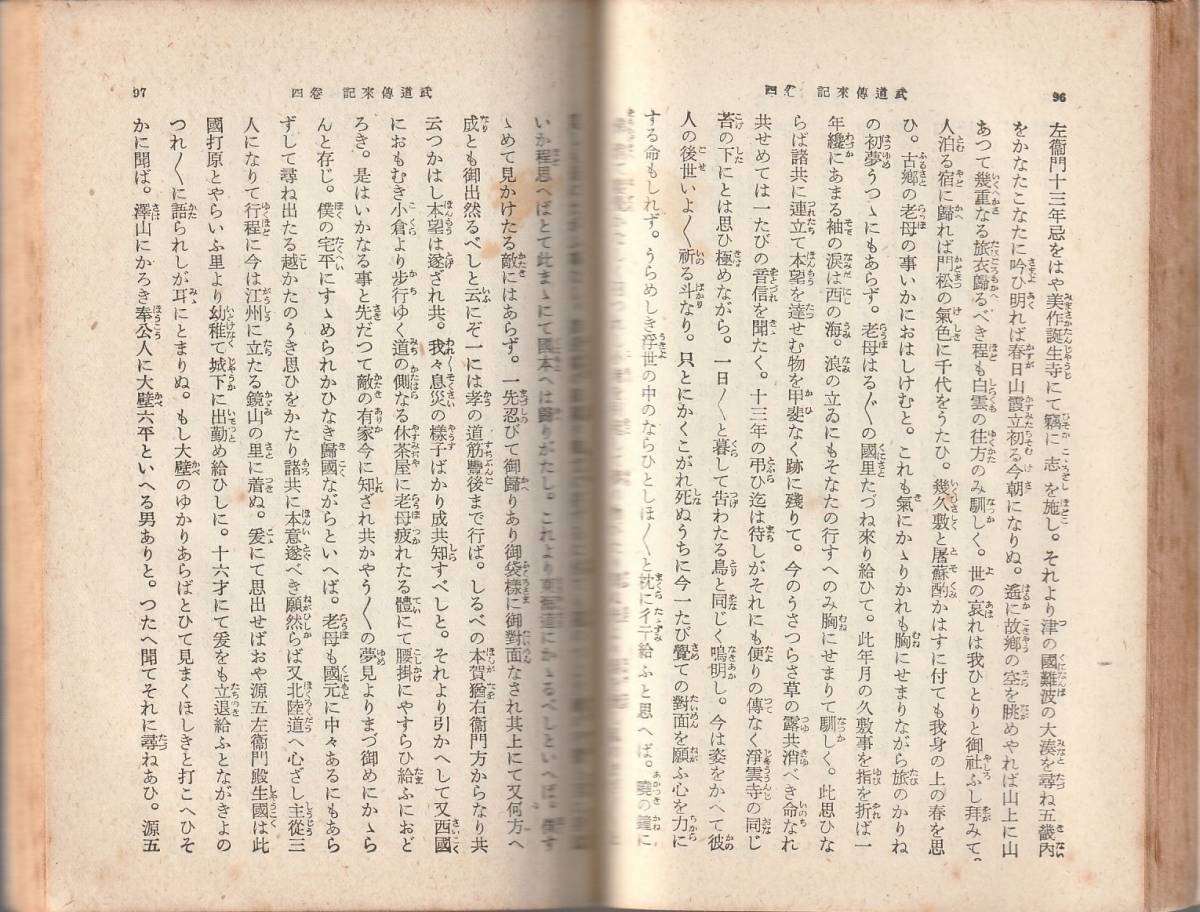 96
武道傳來記　卷四
左衞門十三年忌をはや美作誕生寺にて竊に志を施し。それより津の國難波の大湊を尋ね五畿内
をかなたこなたに吟ひ明れば春日山霞立初る今朝になりぬ。遙に故鄕の空を眺めやれば山上に山
あつて幾重なる旅衣歸るべき程も白雲の往方のみ馴しく。世の哀れは我ひとりと御社ふし拜みて。
人泊る宿に歸れば門松の氣色に千代をうたひ。幾久敷と屠蘇酌かはすに付ても我身の上の春を思
ひ。古鄕の老母の事いかにおはしけむと。これも氣にかゝりかれも胸にせまりながら旅のかりね
の初夢うつゝにもあらず。老母はる〴〵の國里たづね來り給ひて。此年月の久敷事を指を折ば一
年纔にあまる袖の淚は西の海。浪の立ゐにもそなたの行すへのみ胸にせまりて馴しく。此思ひな
らば諸共に連立て本望を達せむ物を甲斐なく跡に殘りて。今のうさつらさ草の露共消べき命なれ
共せめては一たびの音信を聞たく。十三年の弔ひ迄は待しがそれにも便りの傳なく淨雲寺の同じ
苔の下にとは思ひ極めながら。一日〳〵と暮して告わたる鳥と同じく鳴明し。今は姿をかへて彼
人の後世いよ〳〵祈る斗なり。只とにかくこがれ死ぬうちに今一たび覺ての對面を願ふ心を力に
する命もしれず。うらめしき浮世の中のならひとしほ〳〵と枕にイ亍給ふと思へば。曉の鐘に
97
武道傳來記　卷四
いか程思へばとて此まゝにて國本へは歸りがたし。これより
かゝるべしといへば。
ゝめて見かけたる敵にはあらず。一先忍びて御歸りあり御袋樣に御對面なされ其上にて又何方へ
成とも御出然るべしと云にぞ一には孝の道筋豐後まで行ば。しるべの本賀猶右衞門方からなり共
云つかはし本望は遂ざれ共。我々息災の樣子ばかり成共知すべしと。それより引かへして又西國
におもむき小倉より步行ゆく道の側なる休茶屋に老母疲れたる體にて腰掛にやすらひ給ふにおど
ろき。是はいかなる事と先だつて敵の有家今に知ざれ共かやう〳〵の夢見よりまづ御めにかゝら
んと存じ。僕の宅平にすゝめられかひなき歸國ながらといへば。老母も國元に中々あるにもあら
ずして尋ね出たる越かたのうき思ひをかたり諸共に本意遂べき願然らば又北陸道へ心ざし主從三
人になりて行程に今は江州に立たる鏡山の里に着ぬ。爰にて思出せばおや源五左衞門殿生國は此
國打原とやらいふ里より幼稚て城下に出勤め給ひしに。十六才にて爰をも立退給ふとながきよの
つれ〴〵に語られしが耳にとまりぬ。もし大壁のゆかりあらばとひて見まくほしきと打こへひそ
かに聞ば。澤山にかろき奉公人に大壁六平といへる男ありと。つたへ聞てそれに尋ねあひ。源五